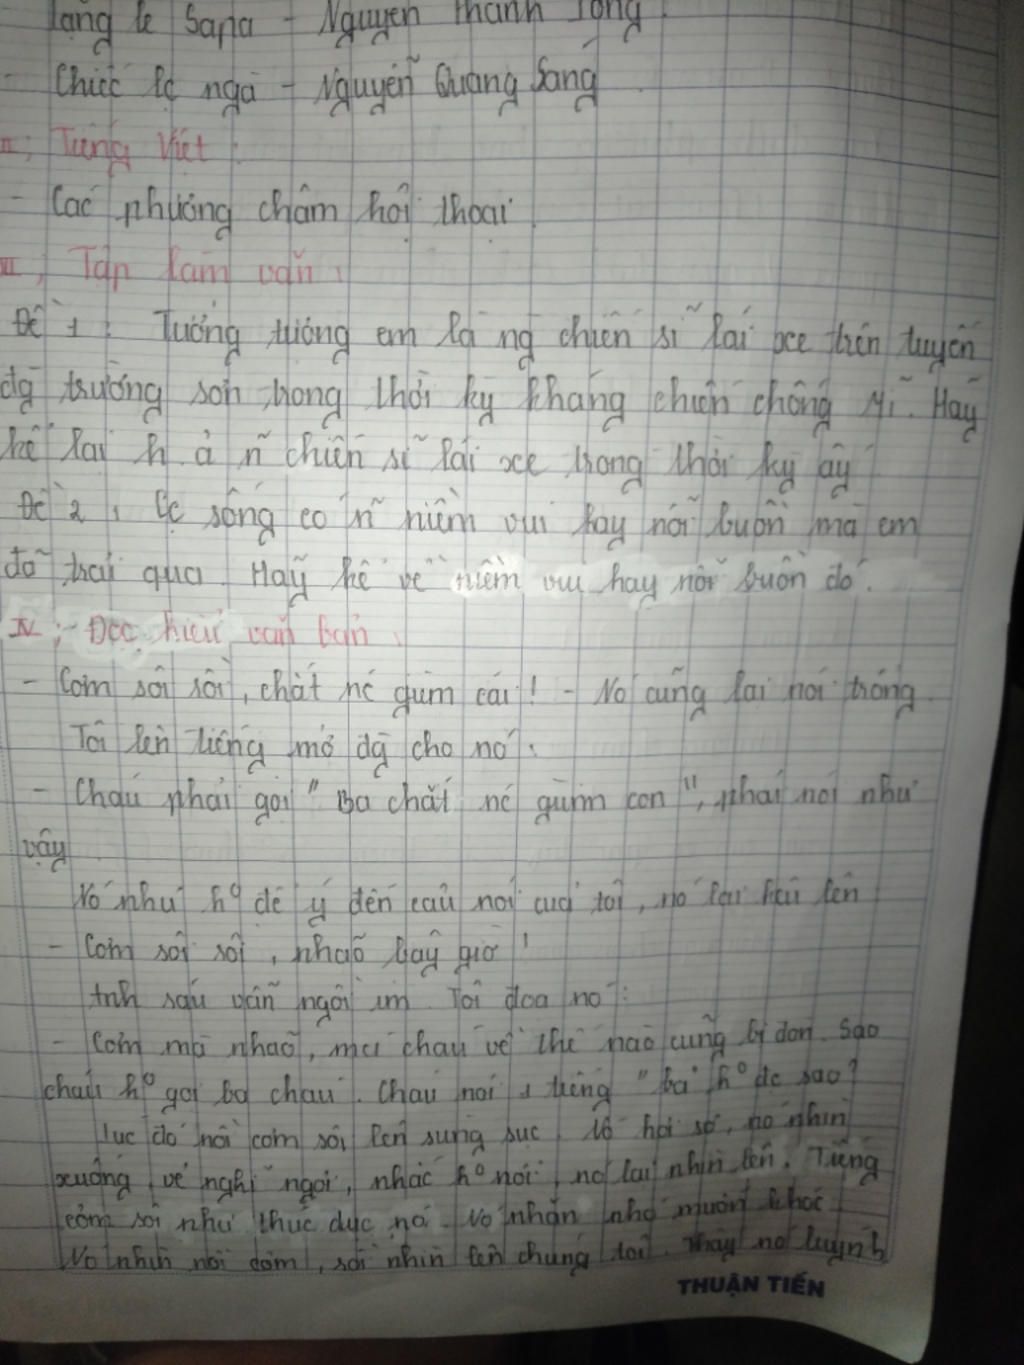 Lặng lẽ Sapa - Nguyễn Thành Long.
- Chiếc lc ngà - Nguyễn Quang Sáng
II, Tiếng Việt :
- Các phương châm hội thoại
III, Tập làm văn :
Đề 1 : Tưởng tượng em là ng chiến sĩ lái xe trên tuyến
đg trường sơn trong thời kỳ kháng chiến chống Mĩ. Hãy
kể lại h. ả ñ chiến sĩ lái xe trong thời kỳ ấy
Đề 2 : Cc sống có ñ niềm vui hay nỗi buồn mà em
đã trải qua. Hãy kể về niềm vui hay nỗi buồn đó.
IV, - Đọc hiểu văn bản :
- Cơm sôi rồi, chắt nc giùm cái ! - Nó cũng lại nói trổng.
Tôi lên tiếng mở đg cho nó :
- Cháu phải gọi " Ba chắt nc giùm con ", phải nói như
vậy
Nó như hº để ý đến câu nói của tôi, nó lại kêu lên
- Cơm sôi rồi, nhão bây giờ !
Anh sáu vẫn ngồi im. Tôi dọa nó :
- Cơm mà nhão, má cháu về thế nào cũng bị đòn. Sao
cháu hº gọi ba cháu. Cháu nói 1 tiếng " ba " hº đc sao ?
lúc đó nồi cơm sôi lên sùng sục. Nó hơi sợ, nó nhìn
xuống, vẻ nghĩ ngợi, nhắc hº nổi, nó lại nhìn lên. Tiếng
cơm sôi như thúc dục nó. Nó nhăn nhó muốn khóc.
Nó nhìn nồi cơm, rồi nhìn lên chúng tôi. Thấy nó luýnh
THUẬN TIẾN